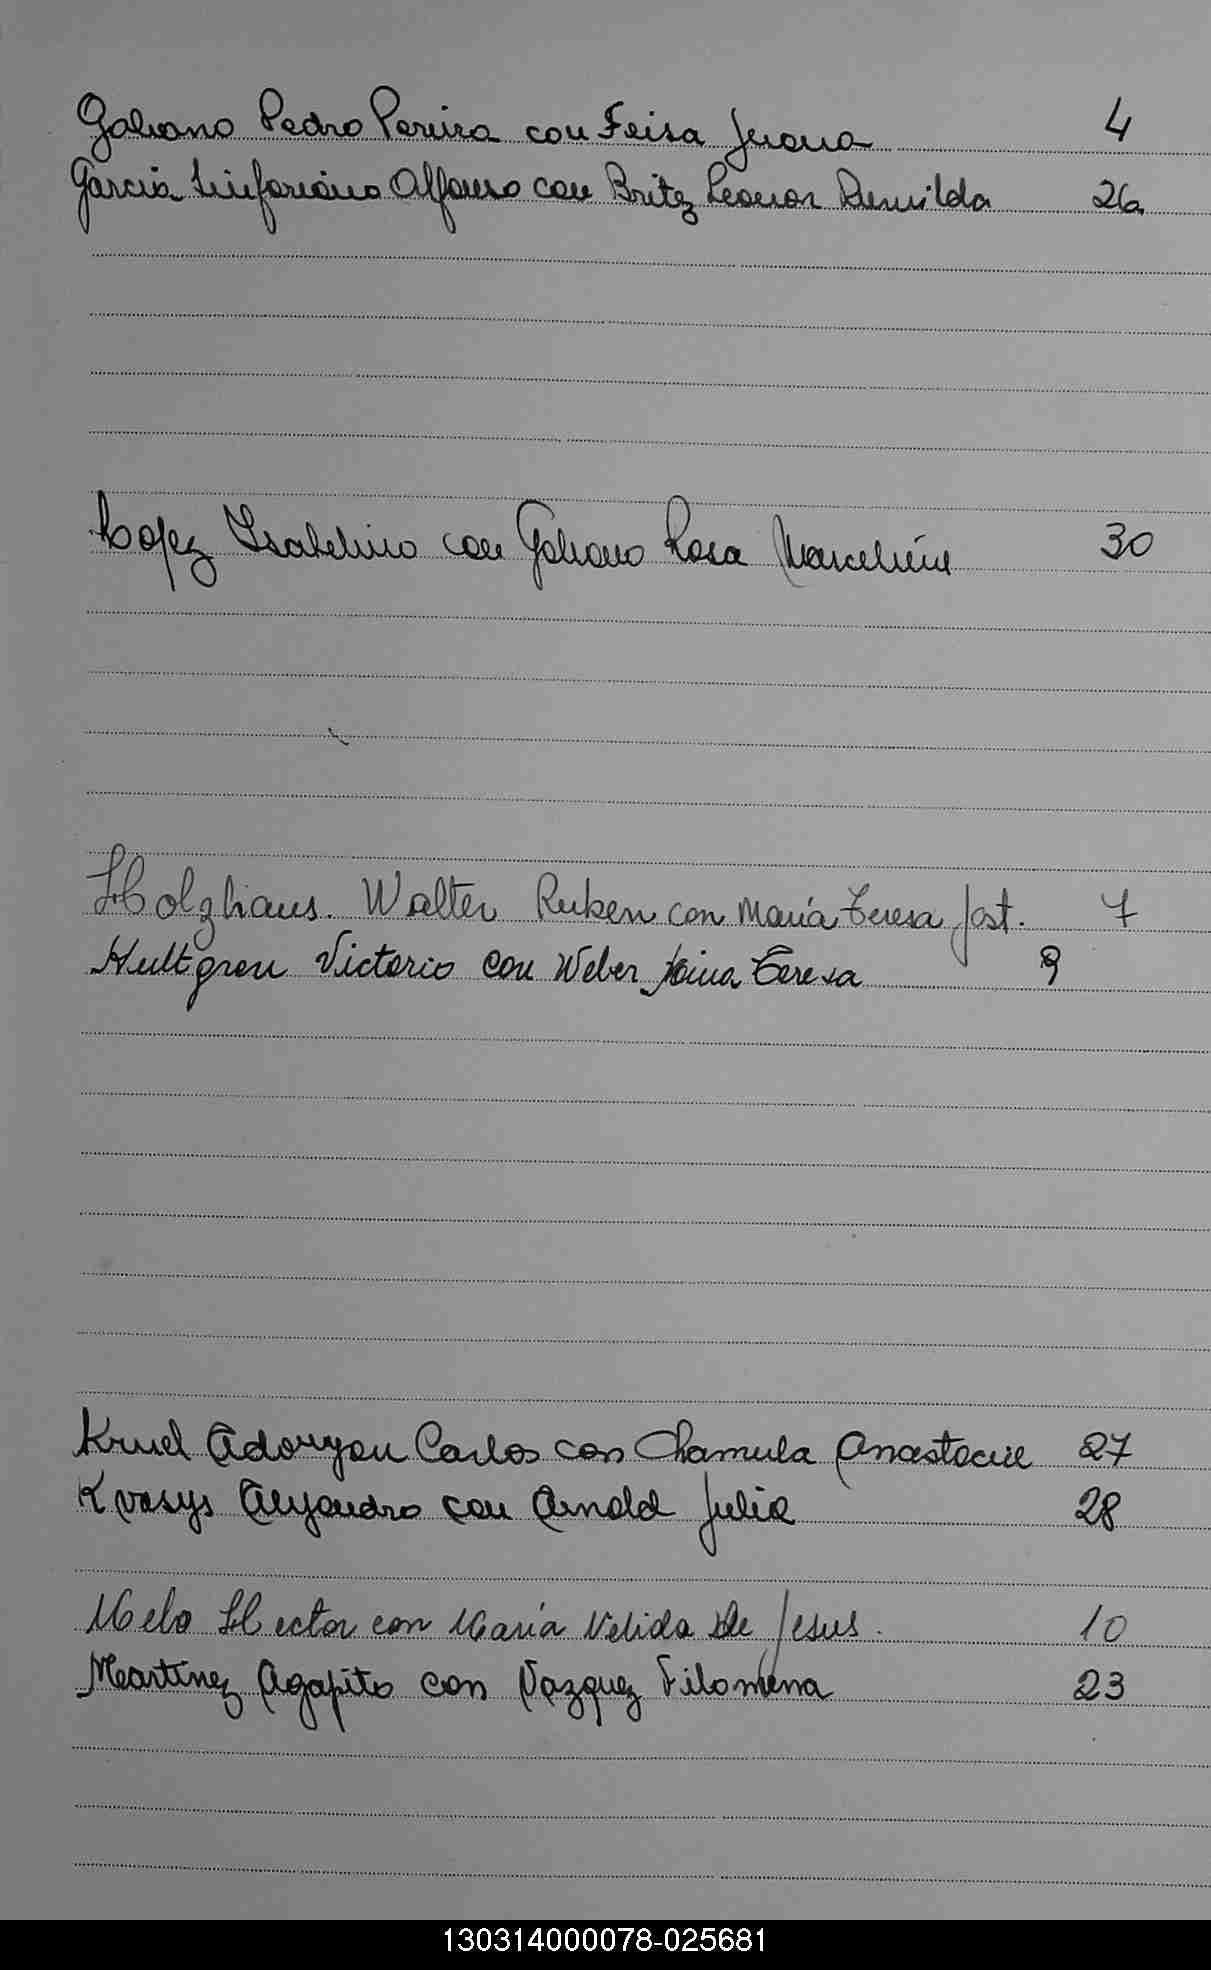 Galeano Pedro Pereira con Feisa Juana 4
Garcia Sinforiano Alfonso con Britez Leonor Remilda 26
Lopez Isabelino con Galeano Rosa Marcelina 30
Holzhaus. Walter Ruben con María Teresa Jost. 7
Hultgren Victorio con Weber Teresa 9
Kruel Carlos con Chamula Anastacia 27
Kvasys Alejandro con Arnold Julia 28
Melo Hector con María Nélida De Jesus. 10
Martinez Agapito con Vazquez Filomena 23
130314000078-025681